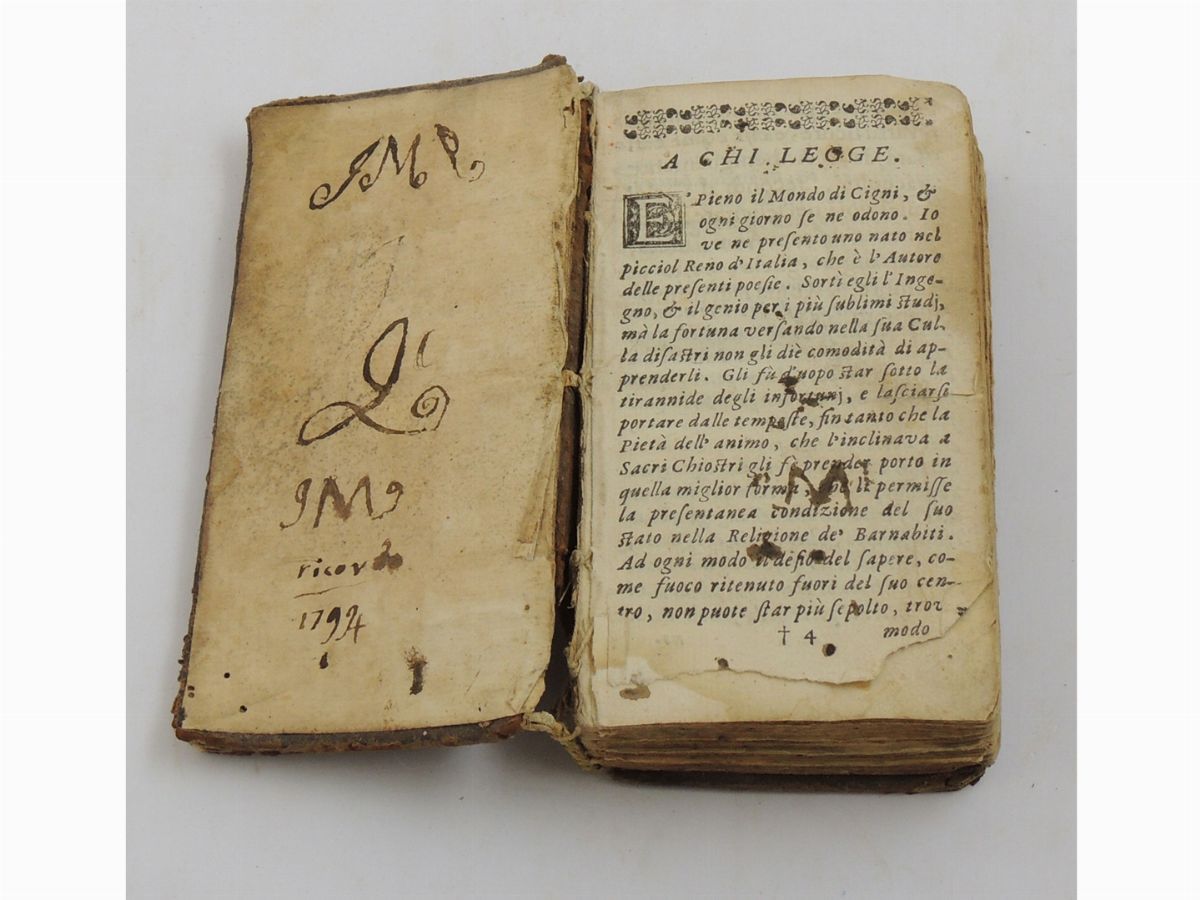 JM
JM
ricordo
1794
A CHI LEGGE.
E' Pieno il Mondo di Cigni, &
ogni giorno ſe ne odono. Io
ve ne preſento uno nato nel
picciol Reno d'Italia, che è l'Autore
delle preſenti poeſie. Sortì egli l'Inge-
gno, & il genio per i più ſublimi ſtudj,
mà la fortuna verſando nella ſua Cul-
la diſaſtri non gli diè comodità di ap-
prenderli. Gli fù d'uopo ſtar ſotto la
tirannide degli infortunj, e laſciarſi
portare dalle tempeſte, fin tanto che la
Pietà dell' animo, che l'inclinava a
Sacri Chioſtri gli fè prender porto in
quella miglior forma, che li permiſſe
la preſentanea condizione del ſuo
ſtato nella Religione de' Barnabiti.
Ad ogni modo il deſio del ſapere, co-
me fuoco ritenuto fuori del ſuo cen-
tro, non puote ſtar più ſepolto, trov
† 4 modo
M